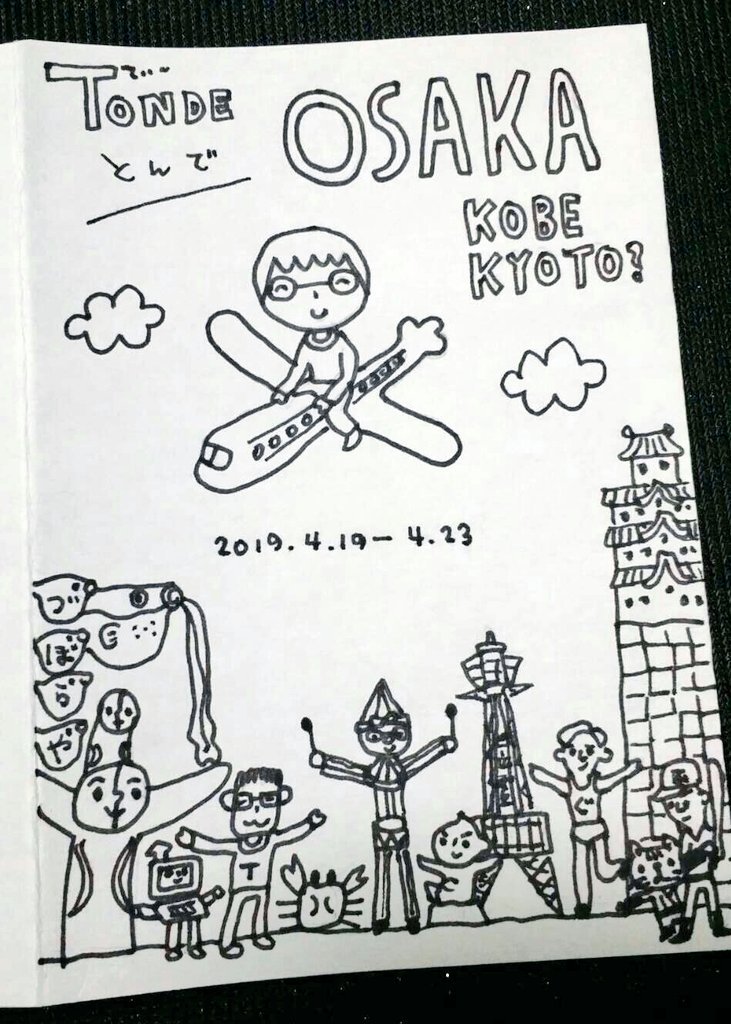 TONDE
とんで
OSAKA
KOBE
KYOTO?
2019.4.19-4.23
づ
ぼ
ら
や
T